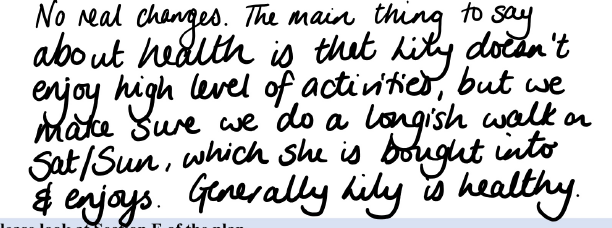 No real changes. The main thing to say
about health is that Lily doesn't
enjoy high level of activities, but we
make sure we do a longish walk on
Sat/Sun, which she is bought into
& enjoys. Generally Lily is healthy.
Please look at Section F of the plan